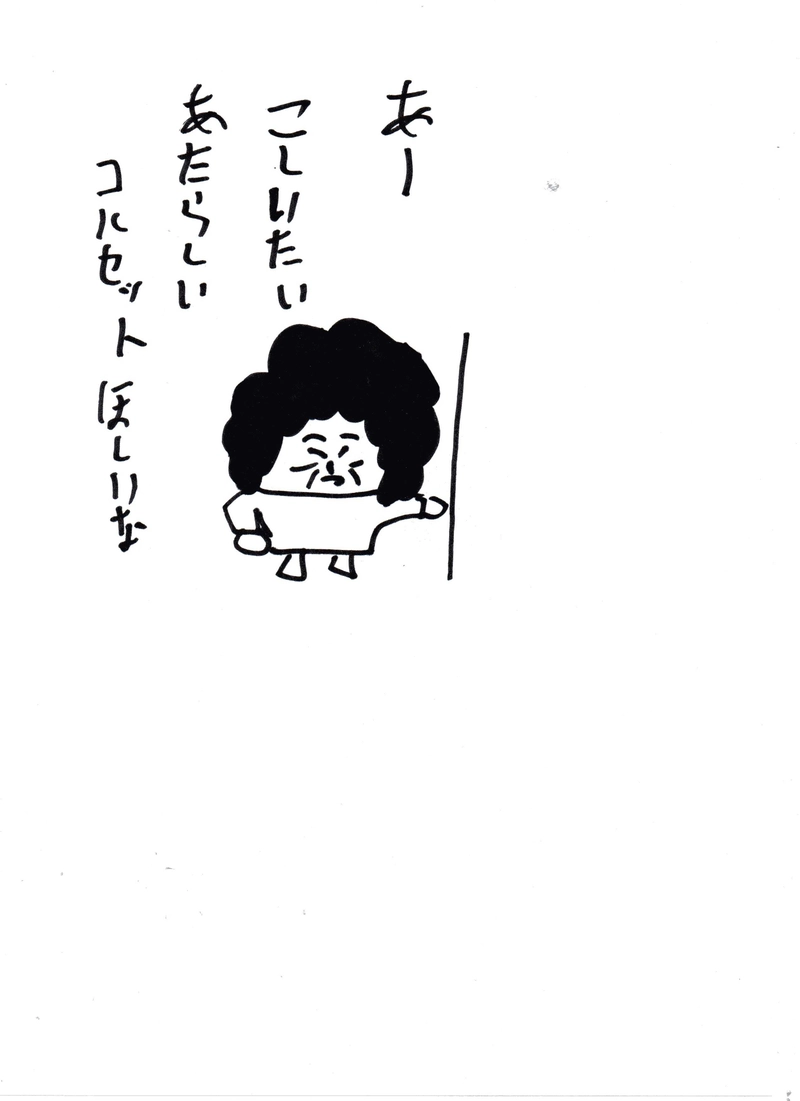 あー
こしいたい
あたらしい
コルセットほしいな